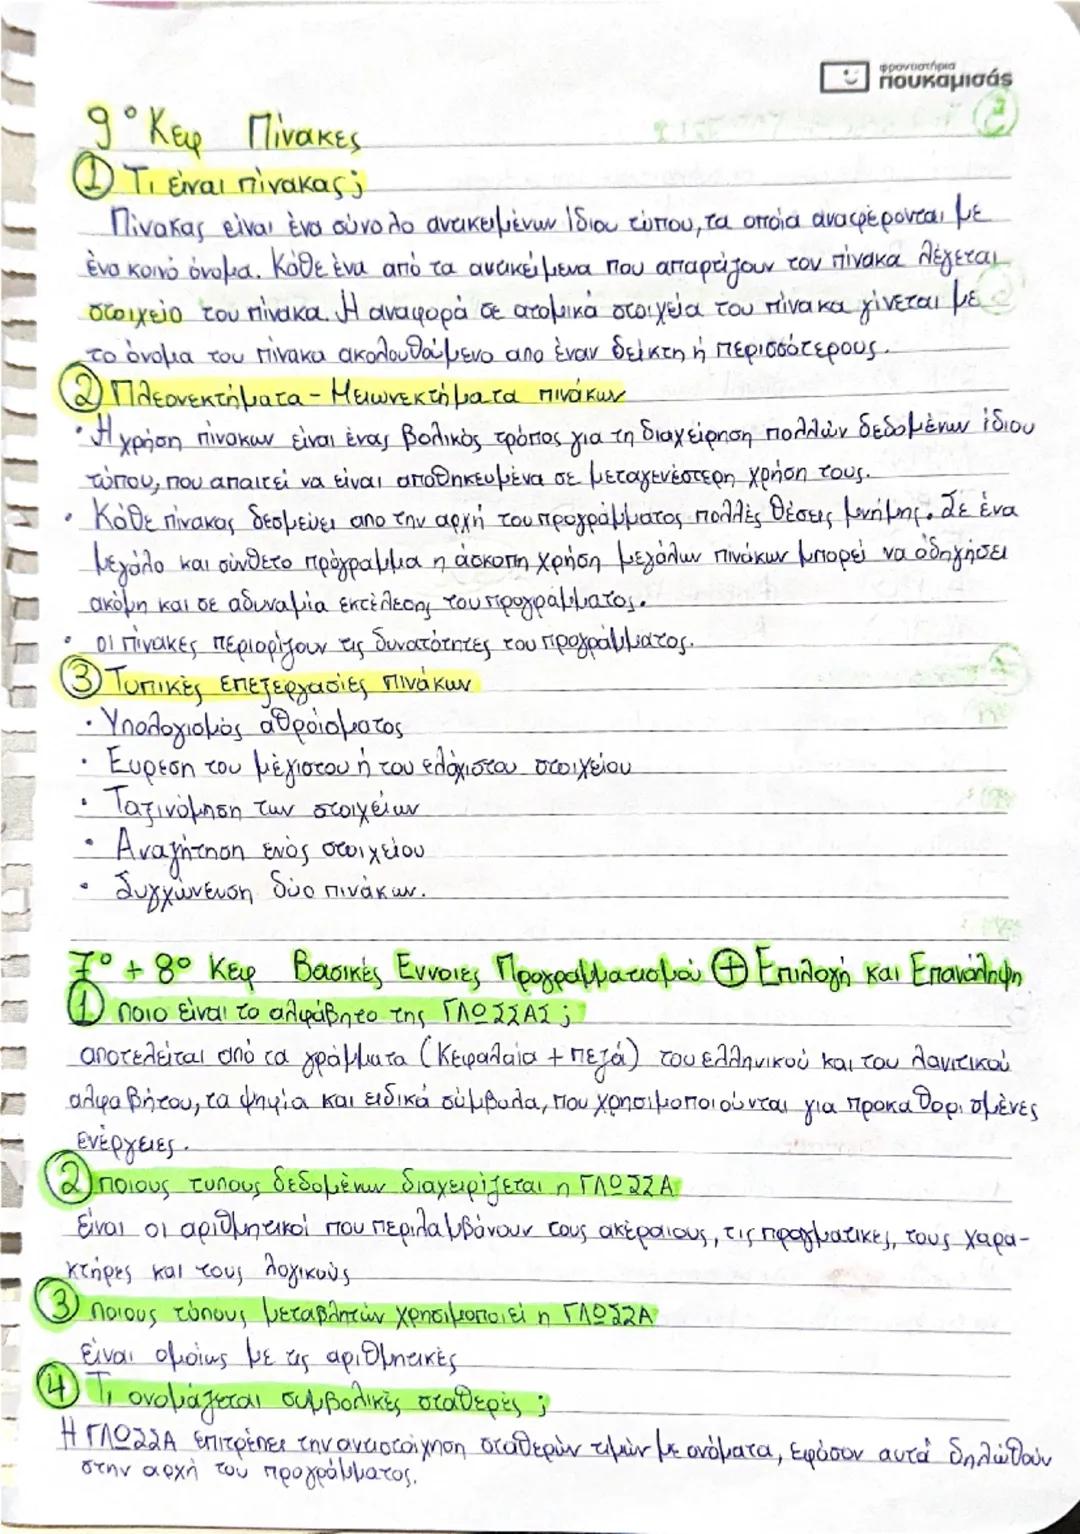 φροντιστήρια
πουκαμισάς
5
9° Κεφ Πίνακες
① Τι είναι πίνακας;
Πίνακας είναι ένα σύνολο αντικειμένων ίδιου τύπου, τα οποία αναφέρονται με
ένα κοινό όνομα. Κάθε ένα από τα αντικείμενα που απαρτίζουν τον πίνακα λέγεται
στοιχείο του πίνακα. Η αναφορά σε ατομικά στοιχεία του πίνακα γίνεται με
το όνομα του πίνακα ακολουθάμενο απο έναν δείκτη ή περισσότερους.
② Πλεονεκτήματα - Μειωνεκτήματα πινάκων
· Η χρήση πίνακων είναι ένας βολικός τρόπος για τη διαχείρηση πολλών δεδομένων ίδιου
τύπου, που απαιτεί να είναι αποθηκευμένα σε μεταγενέστερη χρήση τους.
· Κάθε πίνακας δεσμεύει απο την αρχή του προγράμματος πολλές θέσεις μνήμης. Σε ένα
μεγάλο και σύνθετο πρόγραμμα η άσκοπη χρήση μεγάλων πινάκων μπορεί να οδηγήσει
ακόμη και σε αδυναμία εκτέλεσης του προγράμματος.
· οι πίνακες περιορίζουν τις δυνατότητες του προγράμματος.
③ Τυπικές επεξεργασίες πινάκων
· Υπολογισμός αθροίσματος
· Ευρεση του μέγιστου ή του ελάχιστου στοιχείου
· Ταξινόμηση των στοιχείων
· Αναζήτηση ενός στοιχείου
· Συγχώνευση δύο πινάκων.
7° + 8° Κεφ Βασικές Εννοιες Προγραμματισμού ⊕ Επιλογή και Επανάληψη
① ποιο είναι το αλφάβητο της ΓΛΩΣΣΑΣ;
αποτελείται από τα γράμματα (Κεφαλαία + πεζά) του ελληνικού και του λαντικού
αλφαβήτου, τα ψηφία και ειδικά σύμβολα, που χρησιμοποιούνται για προκαθορισμένες
ενέργειες.
② ποιους τυπους δεδομένων διαχειρίζεται η ΓΛΩΣΣΑ
είναι οι αριθμητικοί που περιλαμβάνουν τους ακέραιους, τις πραγματικές, τους χαρα-
κτήρες και τους λογικούς
③ ποιους τύπους μεταβλητών χρησιμοποιεί η ΓΛΩΣΣΑ
είναι ομοίως με τις αριθμητικές
④ Τι ονομάζεται συμβολικές σταθερές;
Η ΓΛΩΣΣΑ επιτρέπει την αντιστοίχηση σταθερών τιμών με ονόματα, εφόσον αυτά δηλωθούν
στην αρχή του προγράμματος.